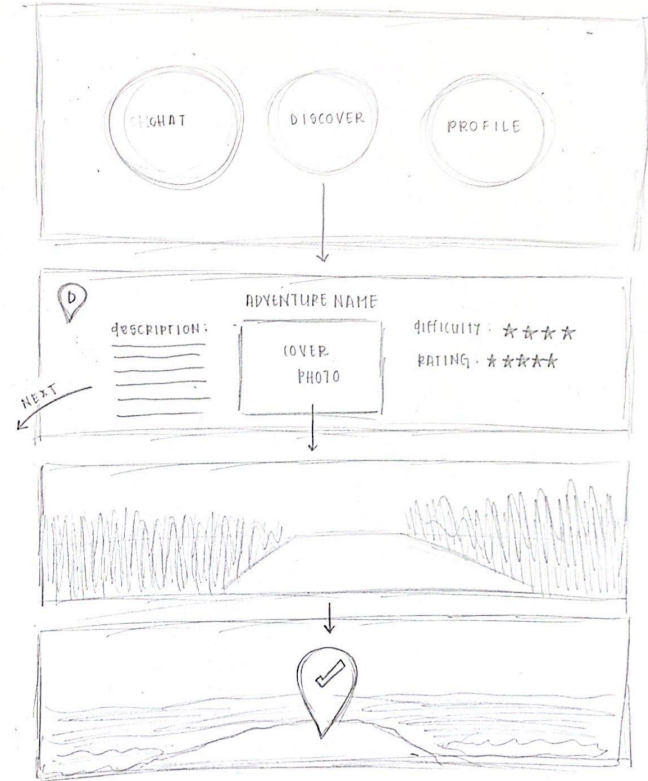 CHAT
DISCOVER
PROFILE
D
ADVENTURE NAME
dESCRIPTION:
COVER
PHOTO
dIFFICULTY: ★★★★
RATING. ★★★★★
NEXT